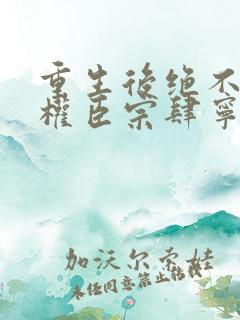 重生後绝不
權臣宗肆寧
加沃尔希娃
未经同意禁止转载